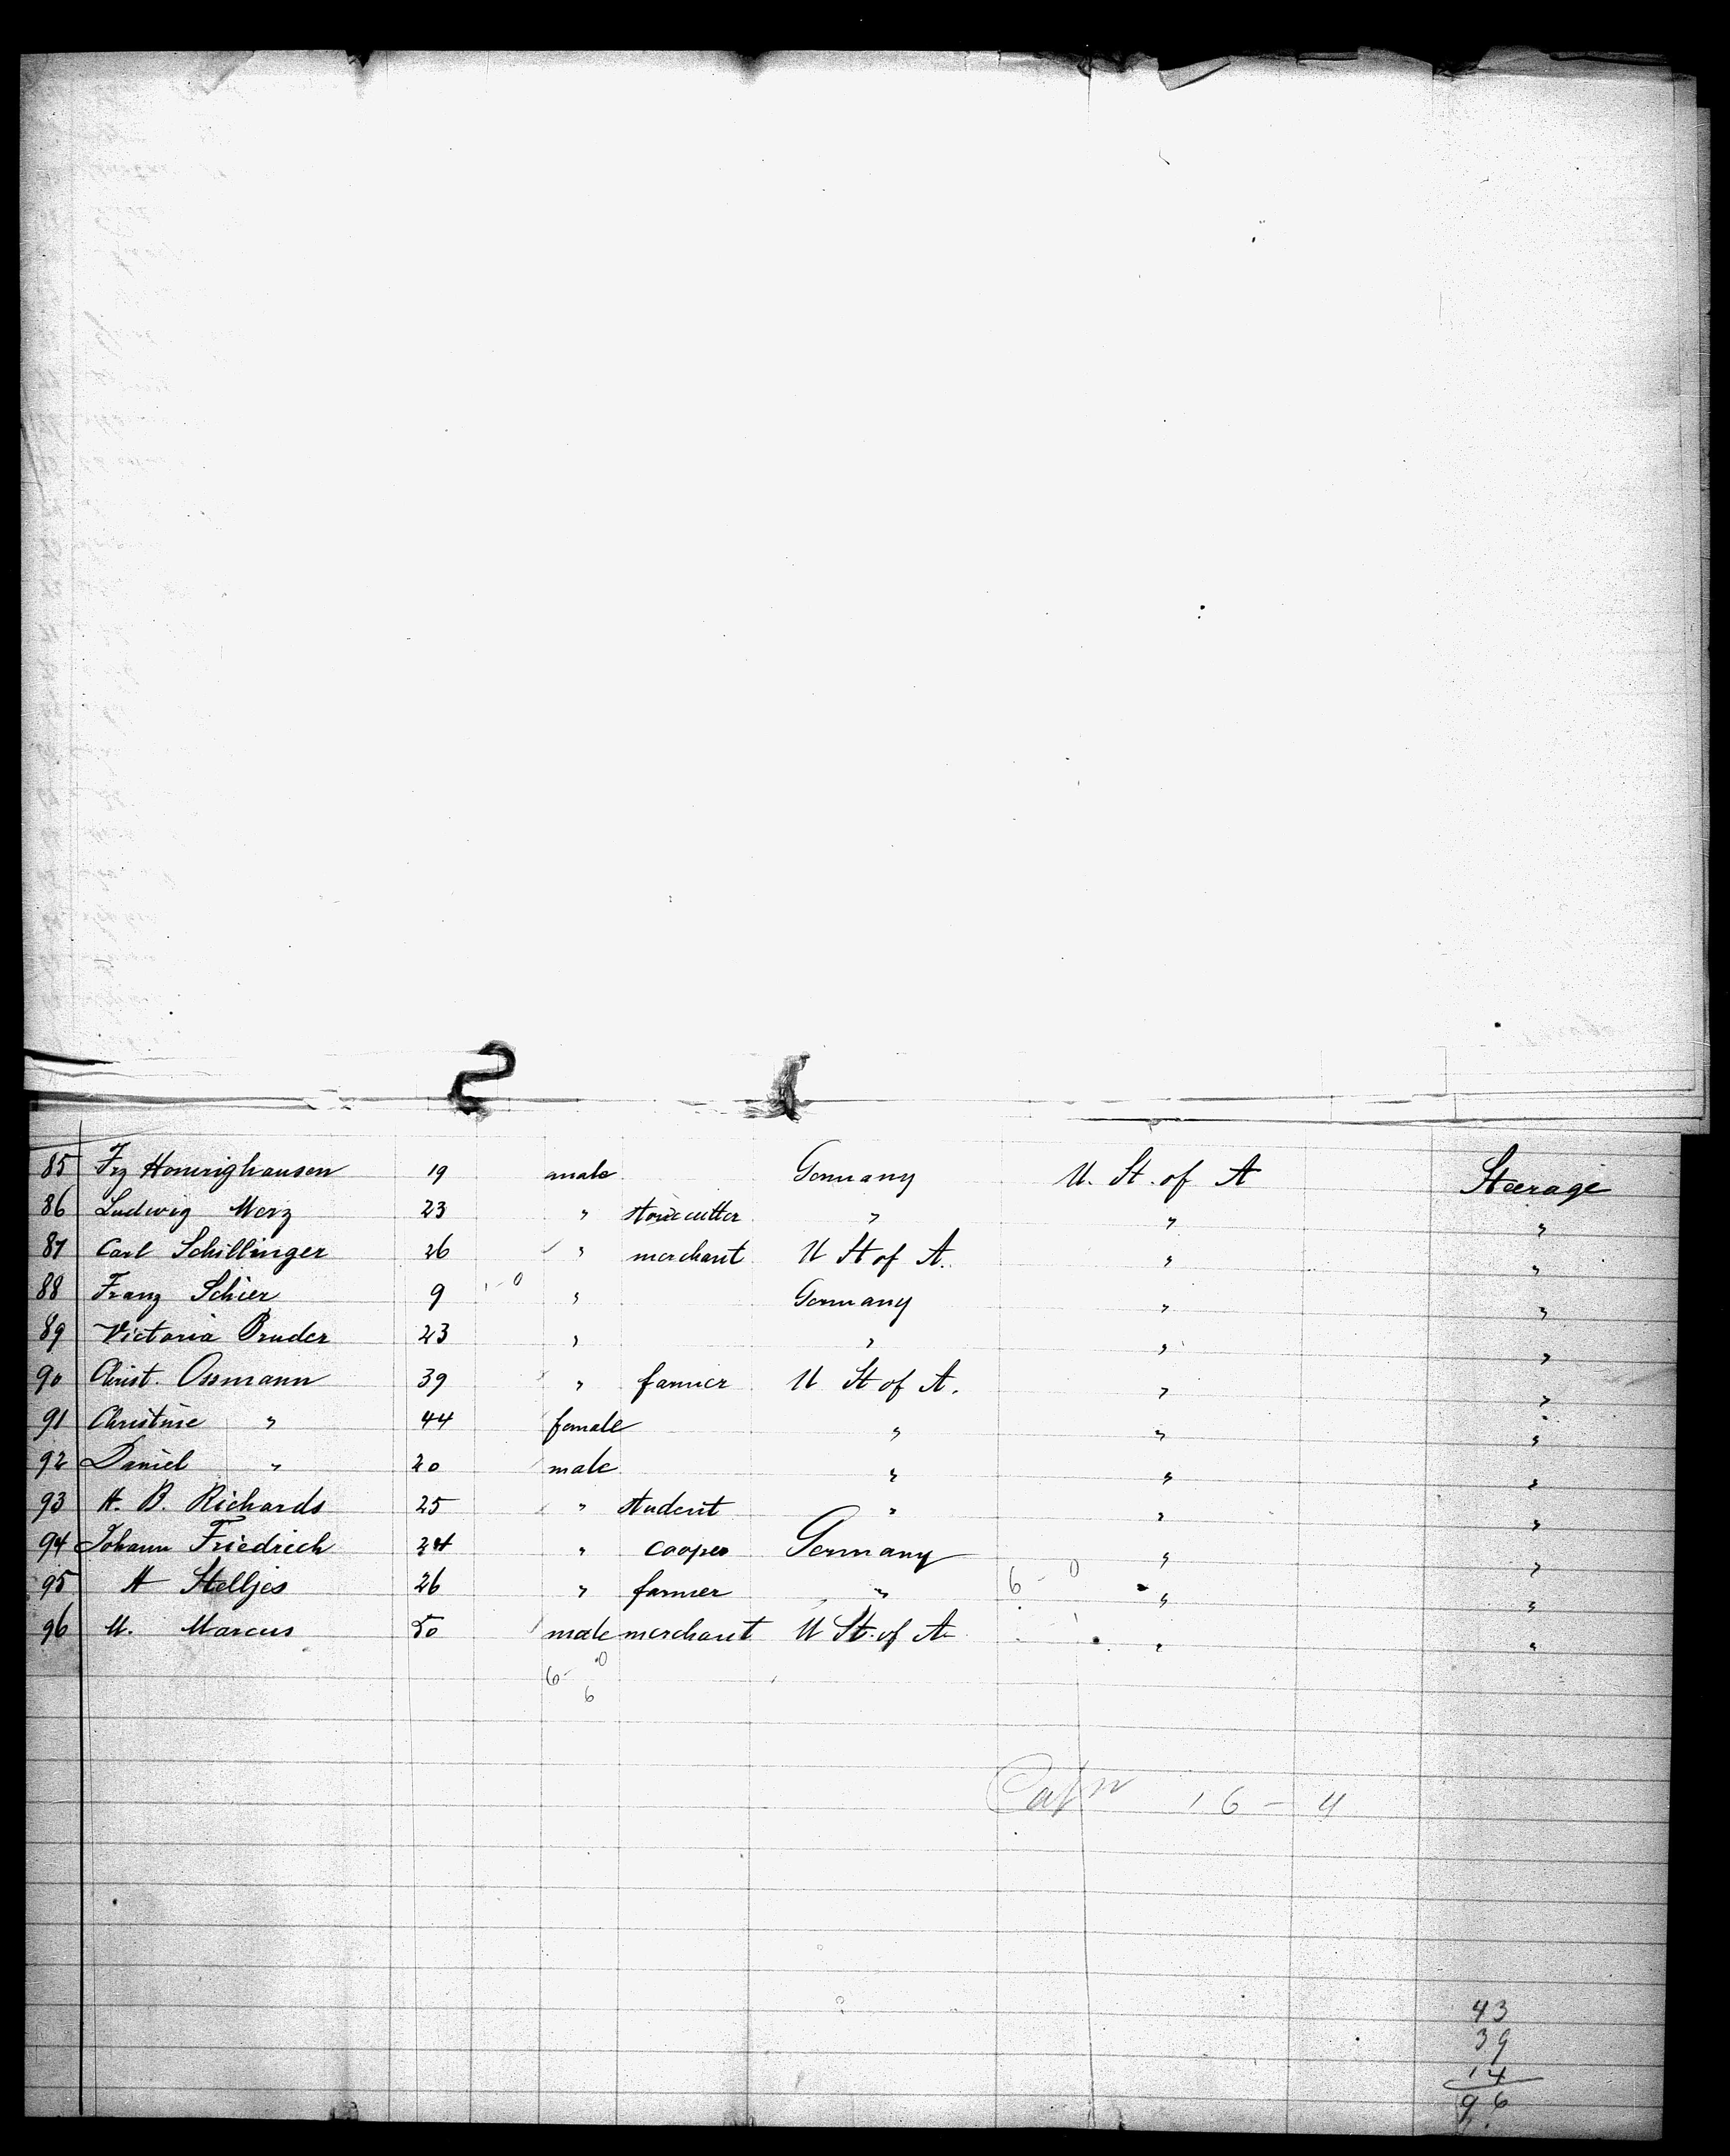 85 Frz Homrighausen 19 male Germany U. St. of A Steerage
86 Ludwig Merz 23 " stonecutter " " "
87 Carl Schillinger 26 " merchant U St of A. " "
88 Franz Schier 9 " Germany " "
89 Victoria Bruder 23 " " " "
90 Christ. Ossmann 39 " farmer U St of A. " "
91 Christine " 44 female " " "
92 Daniel " 20 male " " "
93 H. B. Richards 25 " student " " "
94 Johann Friedrich 24 " cooper Germany " "
95 H Stelljes 26 " farmer " 6 - 0 " "
96 M. Marcus 50 male merchant U St. of A " "
6 - 0
6
16 - 4
43
39
14
96